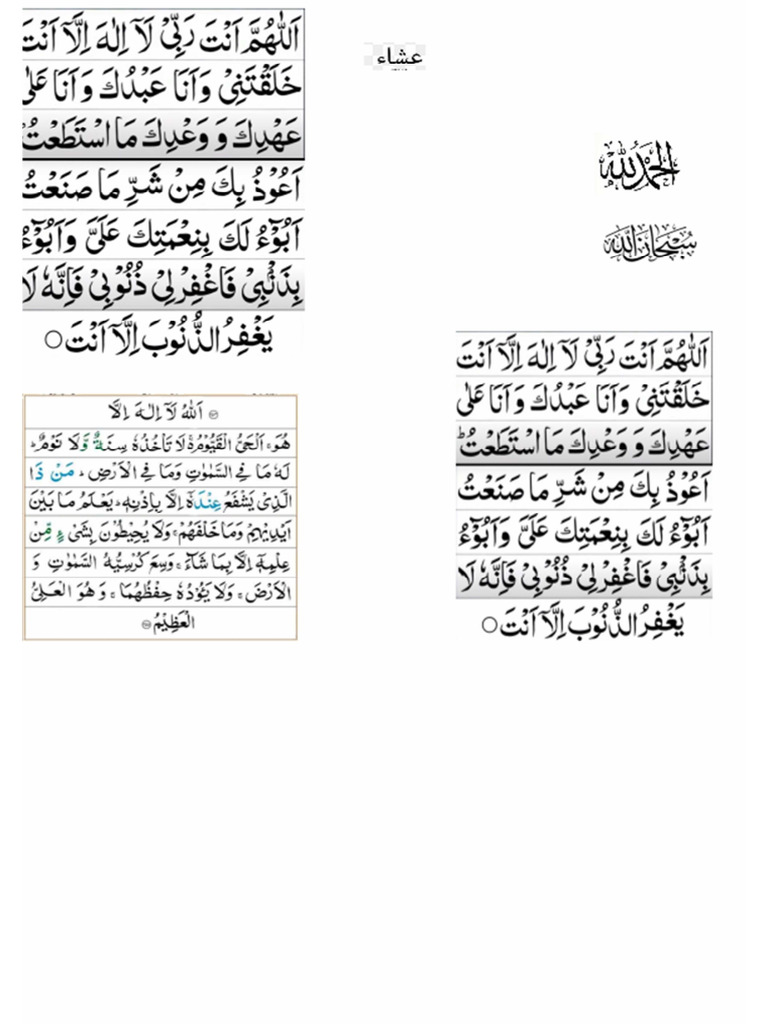 عشاء
اَللّٰهُمَّ اَنْتَ رَبِّيْ لَآ اِلٰهَ اِلَّآ اَنْتَ
خَلَقْتَنِيْ وَاَنَا عَبْدُكَ وَاَنَا عَلٰى
عَهْدِكَ وَ وَعْدِكَ مَا اسْتَطَعْتُ
اَعُوْذُ بِكَ مِنْ شَرِّ مَا صَنَعْتُ
اَبُوْٓءُ لَكَ بِنِعْمَتِكَ عَلَيَّ وَاَبُوْٓءُ
بِذَنْۢبِيْ فَاغْفِرْلِيْ ذُنُوْبِيْ فَاِنَّهٗ لَا
يَغْفِرُ الذُّنُوْبَ اِلَّآ اَنْتَ
اَللّٰهُ لَآ اِلٰهَ اِلَّا
هُوَ ۚ اَلْحَيُّ الْقَيُّوْمُ ۚ لَا تَاْخُذُهٗ سِنَةٌ وَّلَا نَوْمٌ ؕ
لَهٗ مَا فِي السَّمٰوٰتِ وَمَا فِي الْاَرْضِ ؕ مَنْ ذَا
الَّذِيْ يَشْفَعُ عِنْدَهٗٓ اِلَّا بِاِذْنِهٖ ؕ يَعْلَمُ مَا بَيْنَ
اَيْدِيْهِمْ وَمَا خَلْفَهُمْ ۚ وَلَا يُحِيْطُوْنَ بِشَيْءٍ مِّنْ
عِلْمِهٖٓ اِلَّا بِمَا شَآءَ ۚ وَسِعَ كُرْسِيُّهُ السَّمٰوٰتِ وَ
الْاَرْضَ ۚ وَلَا يَـُٔوْدُهٗ حِفْظُهُمَا ۚ وَ هُوَ الْعَلِيُّ
الْعَظِيْمُ
الحمد لله
سبحان الله
اَللّٰهُمَّ اَنْتَ رَبِّيْ لَآ اِلٰهَ اِلَّآ اَنْتَ
خَلَقْتَنِيْ وَاَنَا عَبْدُكَ وَاَنَا عَلٰى
عَهْدِكَ وَ وَعْدِكَ مَا اسْتَطَعْتُ ؕ
اَعُوْذُ بِكَ مِنْ شَرِّ مَا صَنَعْتُ
اَبُوْٓءُ لَكَ بِنِعْمَتِكَ عَلَيَّ وَاَبُوْٓءُ
بِذَنْۢبِيْ فَاغْفِرْلِيْ ذُنُوْبِيْ فَاِنَّهٗ لَا
يَغْفِرُ الذُّنُوْبَ اِلَّآ اَنْتَ